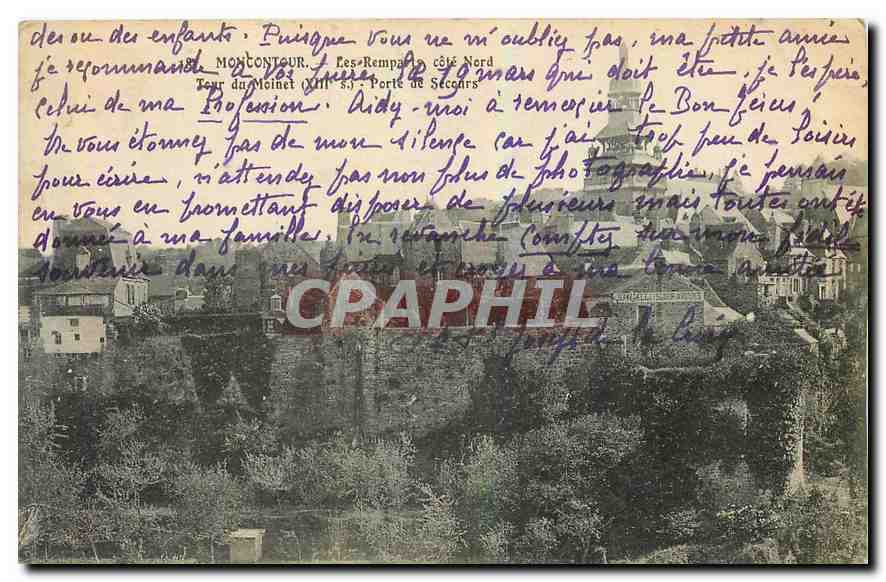 des ou des enfants. Puisque vous ne m'oubliez pas, ma petite amie
MONCONTOUR. Les Remparts, côté Nord
je recommande à vos prières le 19 mars qui doit être, je l'espère,
Tour du Moinet (XIIIe s.) - Porte de Secours
celui de ma Profession. Aidez-moi à remercier le Bon Jésus!
Ne vous étonnez pas de mon silence car j'ai trop peu de loisirs
pour écrire, n'attendez pas non plus de photographie, je pensais
en vous en promettant disposer de plusieurs mais toutes ont été
données à ma famille. En revanche comptez sur mon fidèle
souvenir dans mes prières et croyez à ma bonne amitié
CPAPHIL
Joseph